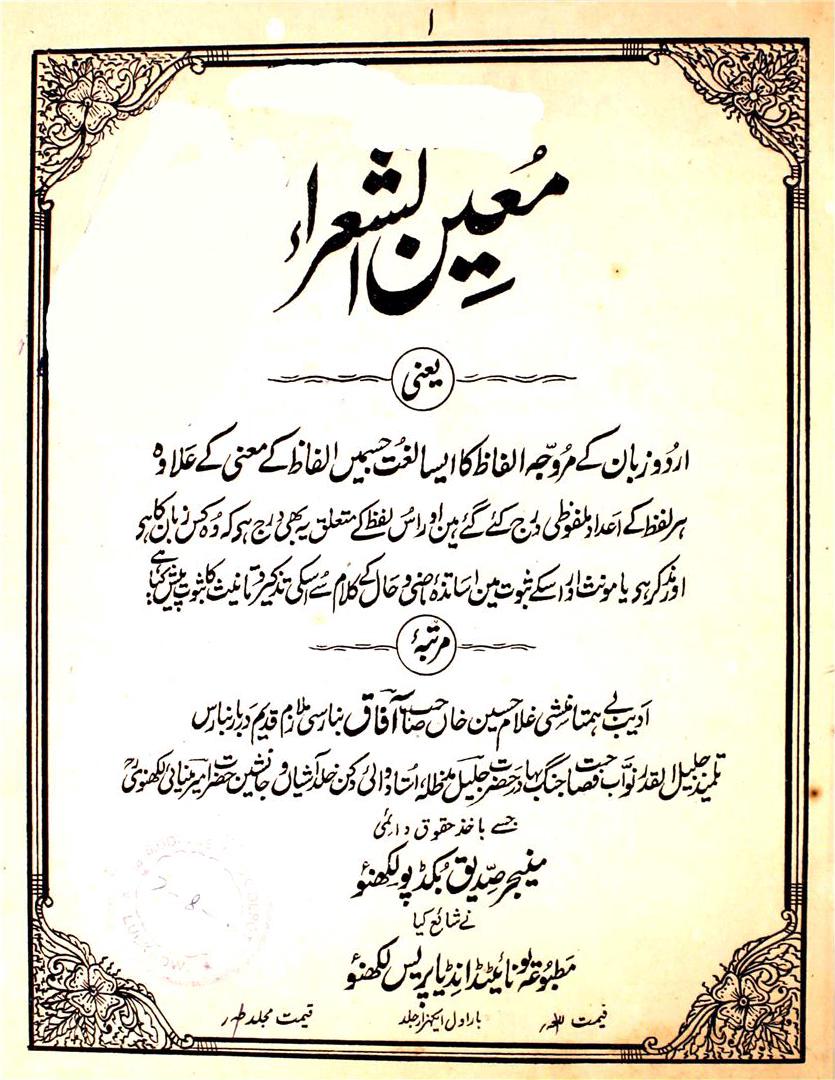 ۱
معین الشعراء
یعنی
اردو زبان کے مروّجہ الفاظ کا ایسا لغت جسمیں الفاظ کے معنی کے علاوہ
ہر لفظ کے اعداد ملفوظی درج کئے گئے ہین اور اُس لفظ کے متعلق یہ بھی درج ہی کہ وُہ کس زبان کا ہی
اور مذکر ہی یا مونث اور اسکے ثبوت مین اساتذۂ ماضی و حال کے کلام سے اُسکی تذکیر و تانیث کا ثبوت پیش کیا ہے
مرتبۂ
ادیب بے ہمتا منشی غلام حسین خاں صاحب آفاق بنارسی ملازم قدیم دربار بنارس
تلمیذ جلیل القدر نوّاب فصاحت جنگ بہادر حضرت جلیل مدظلہ، اُستاد والیٔ دکن خلد آشیاں و جانشین حضرت امیر مینائی لکھنویؒ
جسے باخذ حقوق دائمی
مینیجر صدیق بُکڈپو لکھنؤ
نے شائع کیا
مطبُوعہ یونائیٹڈ انڈیا پریس لکھنؤ
قیمت
بار اول ایکہزار جلد
قیمت مجلد